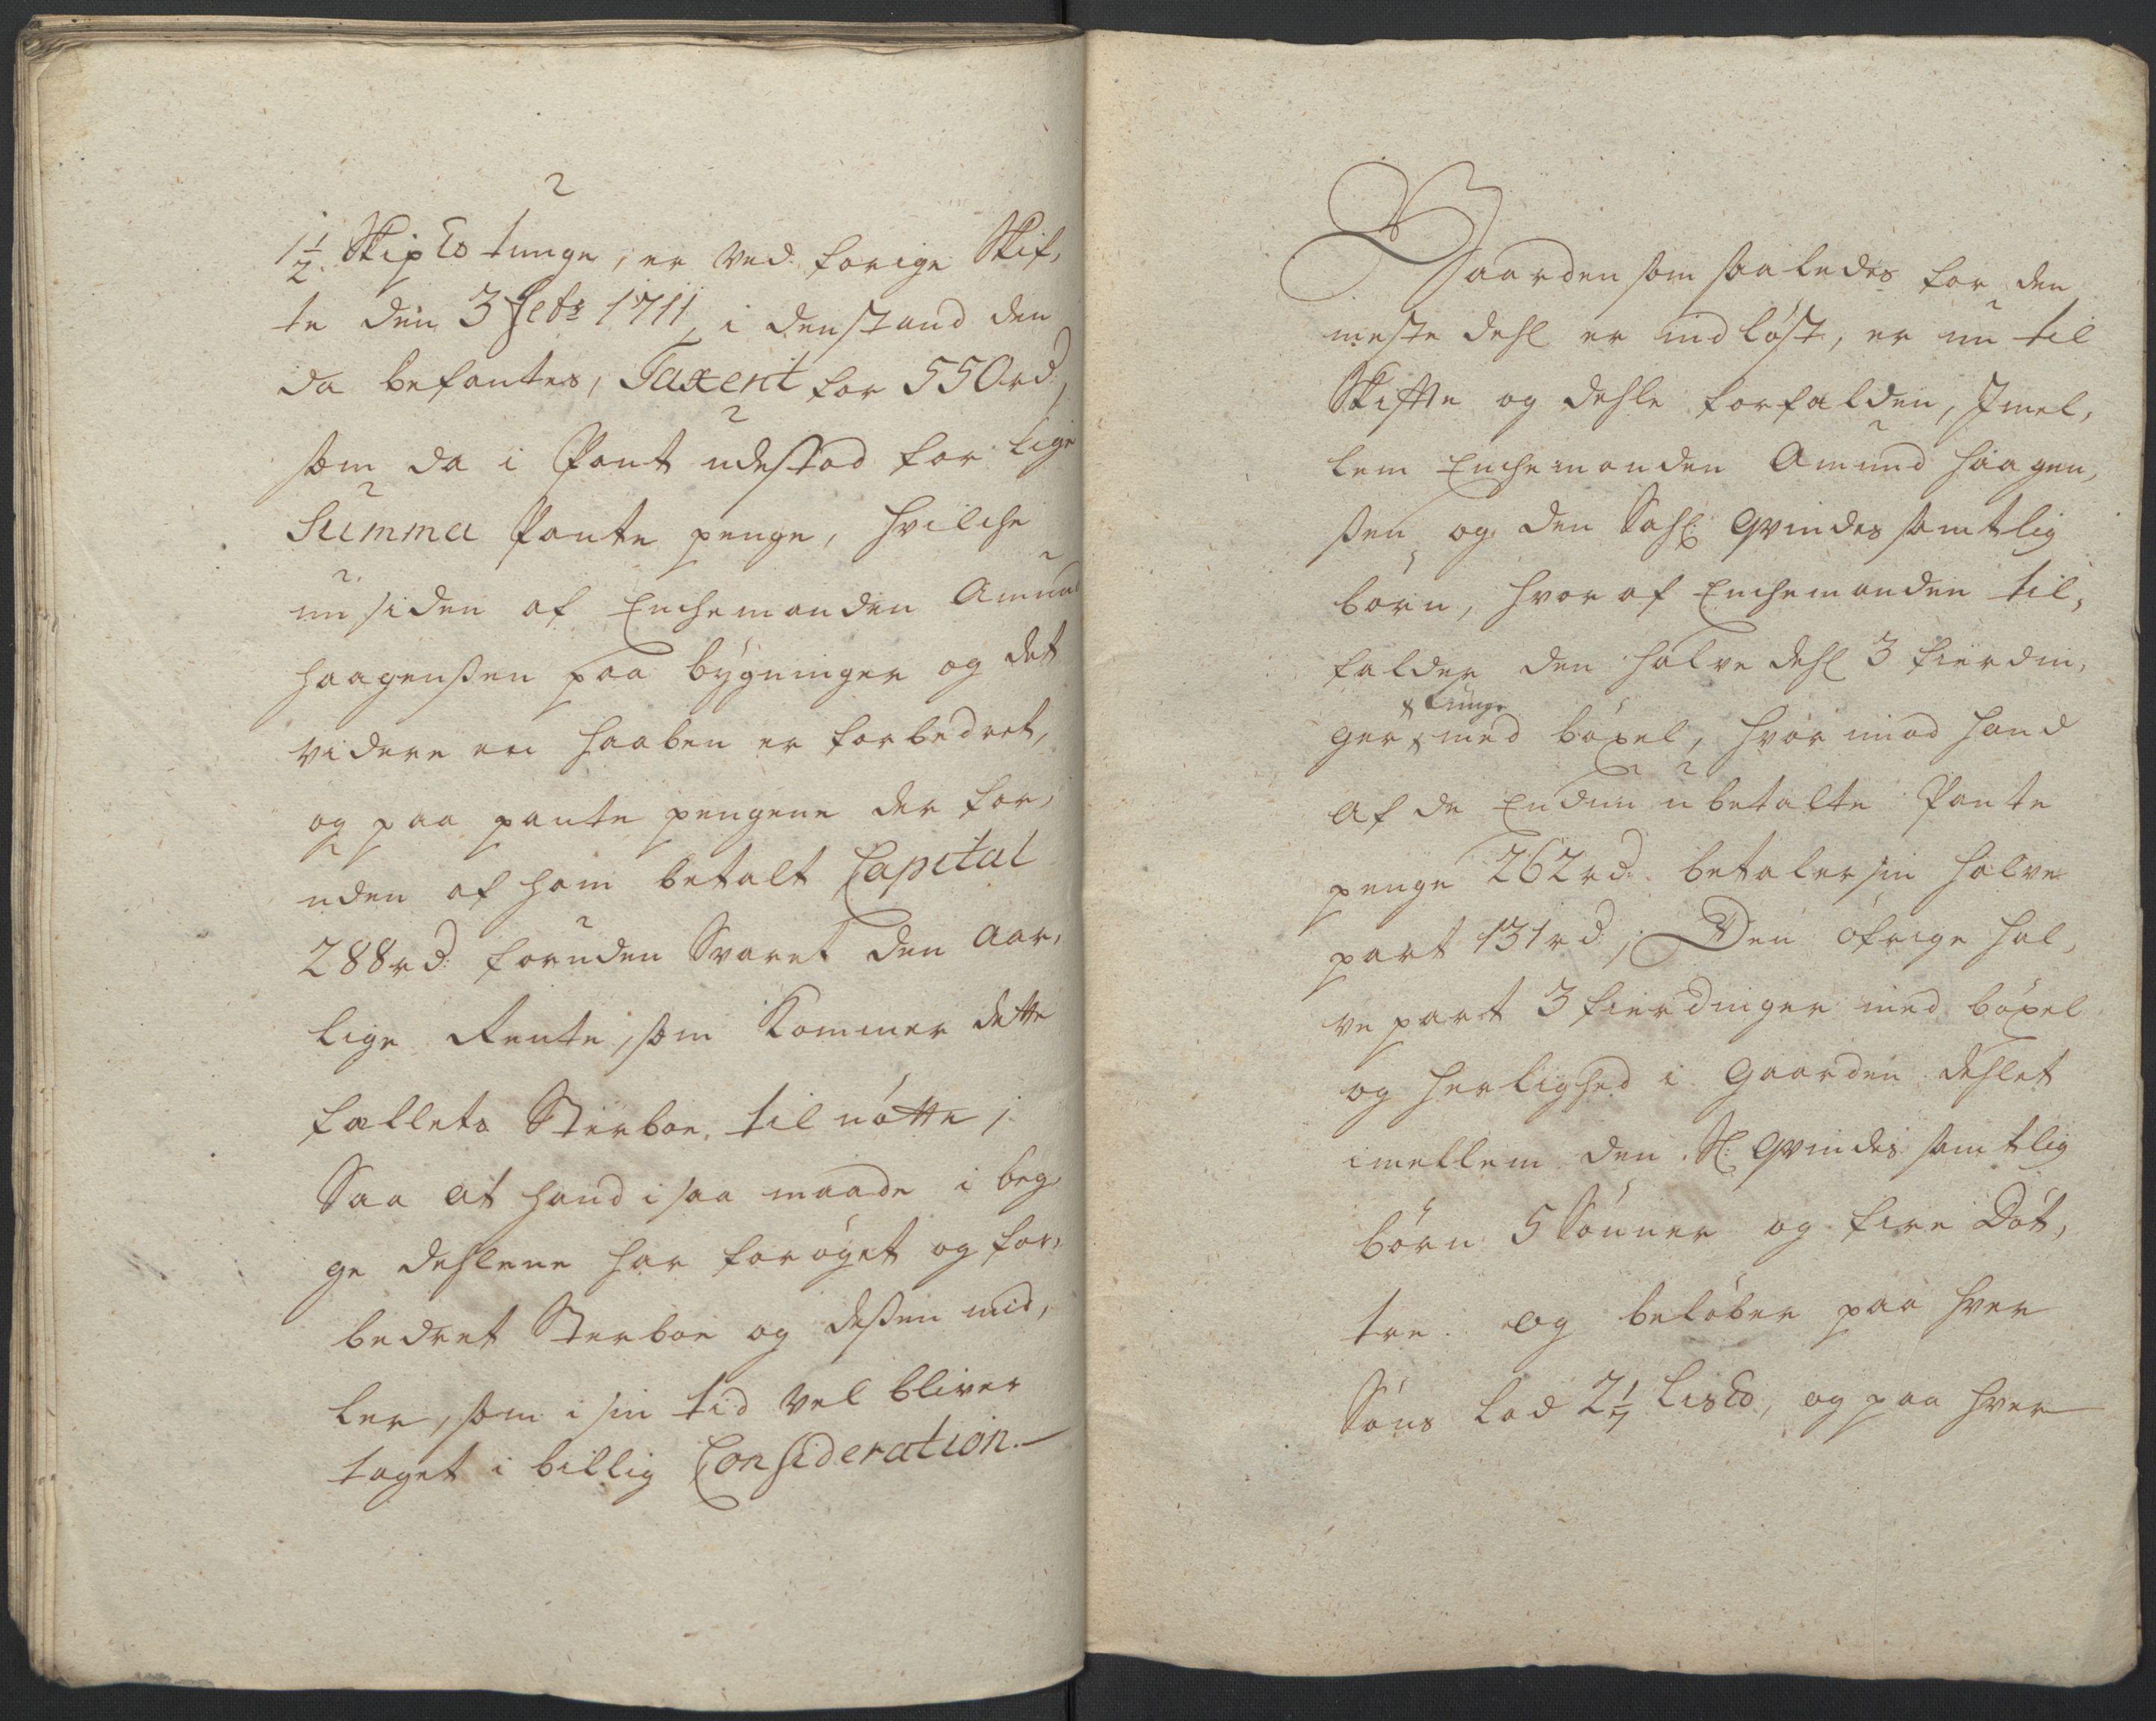 1½ Skip℔ tunge, er ved forige Skif,
te den 3 Febr 1711, i den stand den
da befantes, Taxerit for 550 rd,
som da i Pant udestod for lige
Summa Pante penge, hvilche
nu siden af Enchemanden Amund
Haagenßen paa bygninger og det
videre en haaben er forbedret,
og paa pante pengene der for,
uden af ham betalt Capital
288 rd: foruden Svaret den aar,
lige Rente, som kommer dette
fællets Sterboe til nøtte;
Saa at hand i saa maade i beg,
ge dehlene har forøget og for,
bedret Sterboe og deßen mid,
ler, som i sin tid vel bliver
taget i billig Consideration.
Gaarden som saaledes for den
meste dehl er indløst, er nu til
Skifte og dehle forfalden, Imel,
lem Enchemanden Amund Haagen,
ßen og den Sahl: Qvindes samtlig
børn, hvor af Enchemanden til,
falder den halve dehl 3 fierdin,
tunge
ger med bøxel, hvor imod hand
af de Endnu ubetalte Pante
penge 262 rd. betaler sin halve
part 131 rd; Den øfrige hal,
ve part 3 fierdinger med bøxel
og herlighed i Gaarden dehlet
imellem den Sl: Qvindes samtlig
børn 5 Sønner og fire Døt,
tre. og beløber paa hver
Søns lod 2 1/7 Lis℔, og paa hver